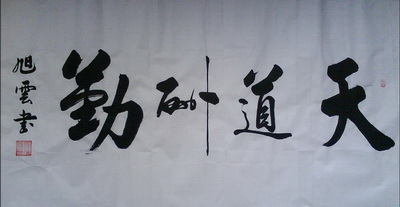 天道酬勤
旭雲書